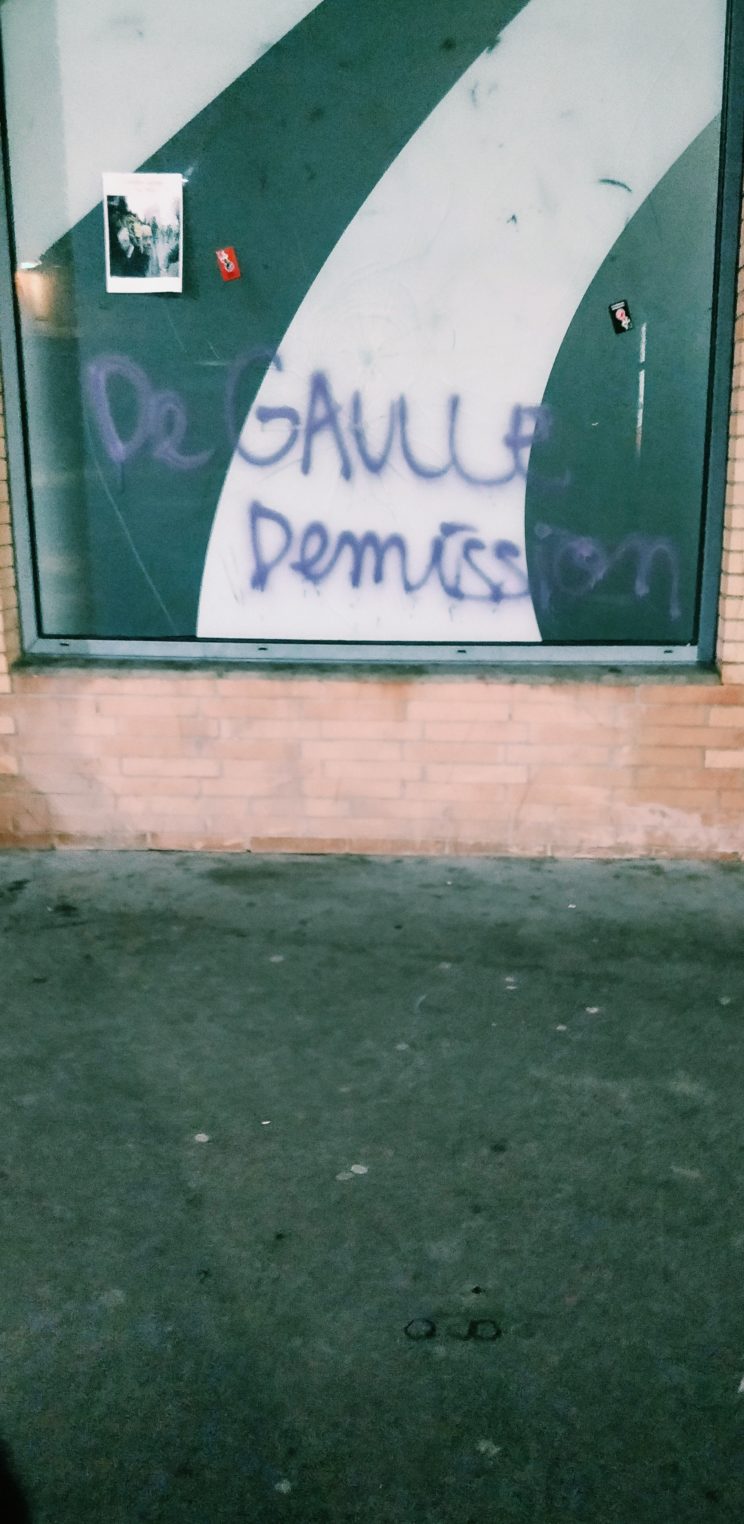 De GAULLE
Demission